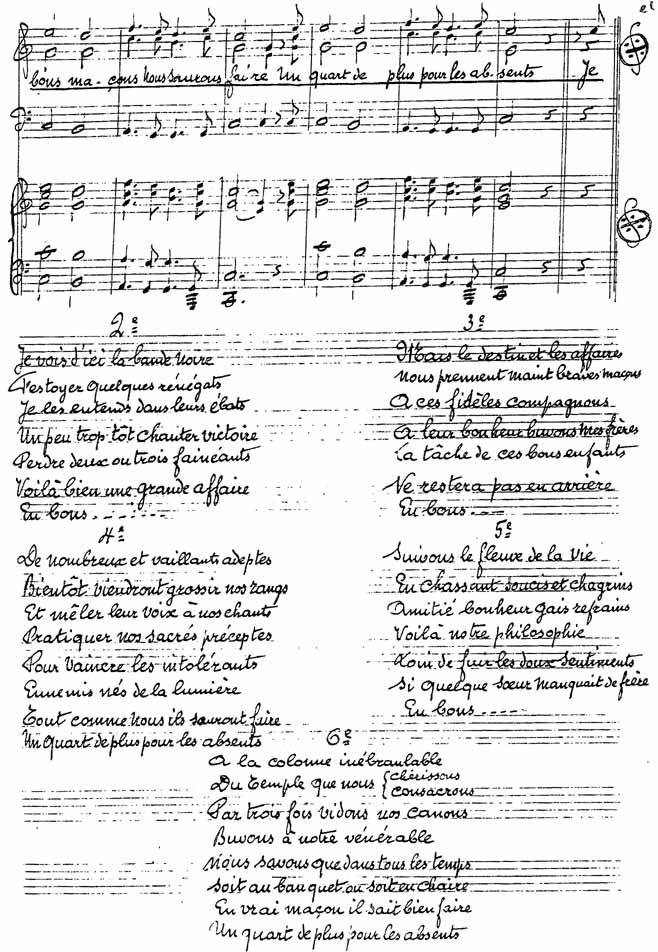 et
bons ma - çons nous saurons faire Un quart de plus pour les ab - sents Je
2e
Je vois d'ici la bande noire
Festoyer quelques rénégats
Je les entends dans leurs ébats
Un peu trop tôt chanter victoire
Perdre deux ou trois fainéants
Voilà bien une grande affaire
En bons
3e
Mais le destin et les affaires
Nous prennent maint braves maçons
A ces fidèles compagnons
A leur bonheur buvons mes frères
La tâche de ces bons enfants
Ne restera pas en arrière
En bons
4e
De nombreux et vaillants adeptes
Bientôt viendront grossir nos rangs
Et mêler leur voix à nos chants
Pratiquer nos sacrés préceptes
Pour vaincre les intolérants
Ennemis nés de la lumière
Tout comme nous ils sauront faire
Un quart de plus pour les absents
5e
Suivons le fleuve de la vie
En chassant soucis et chagrins
Amitié bonheur gais refrains
Voilà notre philosophie
Loin de fuir les doux sentiments
Si quelque sœur manquait de frère
En bons ----
6e
A la colonne inébranlable
Du Temple que nous { chérissons
consacrons
Par trois fois vidons nos canons
Buvons à notre vénérable
Nous savons que dans tous les temps
Soit au banquet ou soit en chaire
En vrai maçon il sait bien faire
Un quart de plus pour les absents